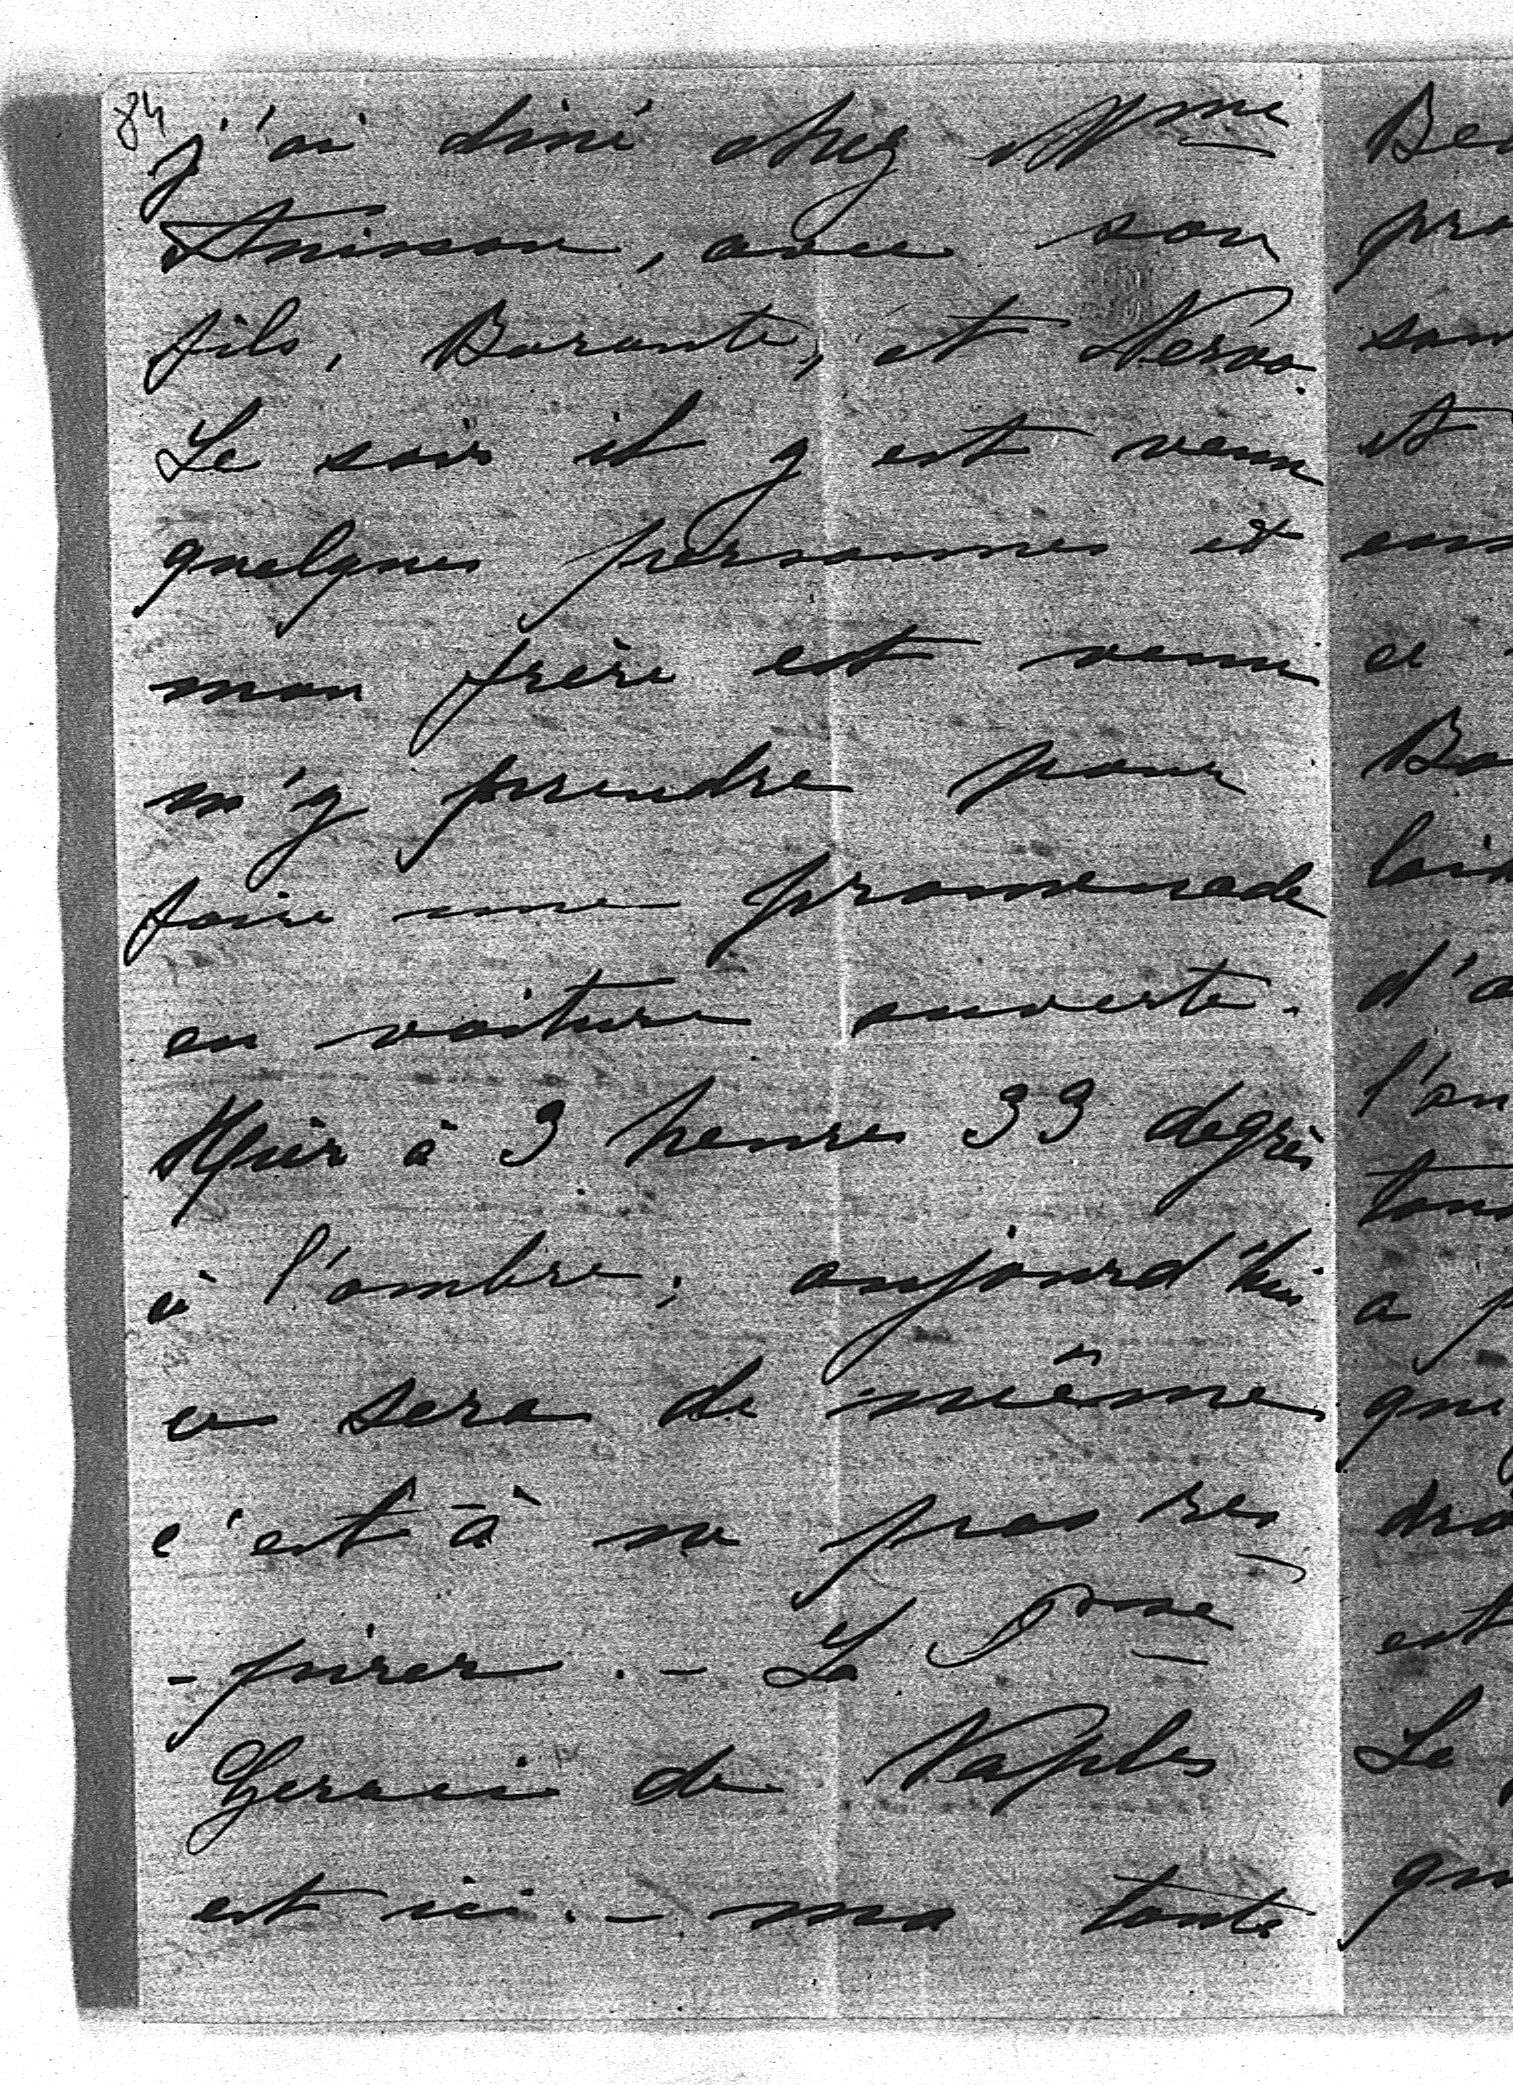 84
j'ai diné chez Mme
Anisson, avec son
fils, Barante, et Nervo.
Le soir il y est venu
quelques personnes et
mon frère est venu
m'y prendre pour
faire une promenade
en voiture ouverte.
Hier à 3 heures 33 degrès
à l'ombre; aujourd'hui
ce sera de même
c'est à ne pas res
-pirer. - La Pme
Gerace de Naples
est ici. - ma toute
Be
pro
son
et
ens
ce
Ba
loin
d'a
l'en
tous
a p
que
dro
est
Le
qu